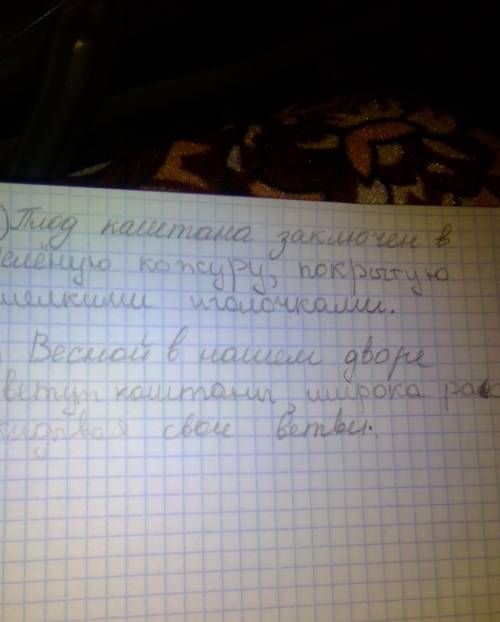 ) Плод каштана заключен в
елёную кожуру, покрытую
мелкими иголочками.
Весной в нашем дворе
ветут каштаны, широка рас
кидывая свои ветви.